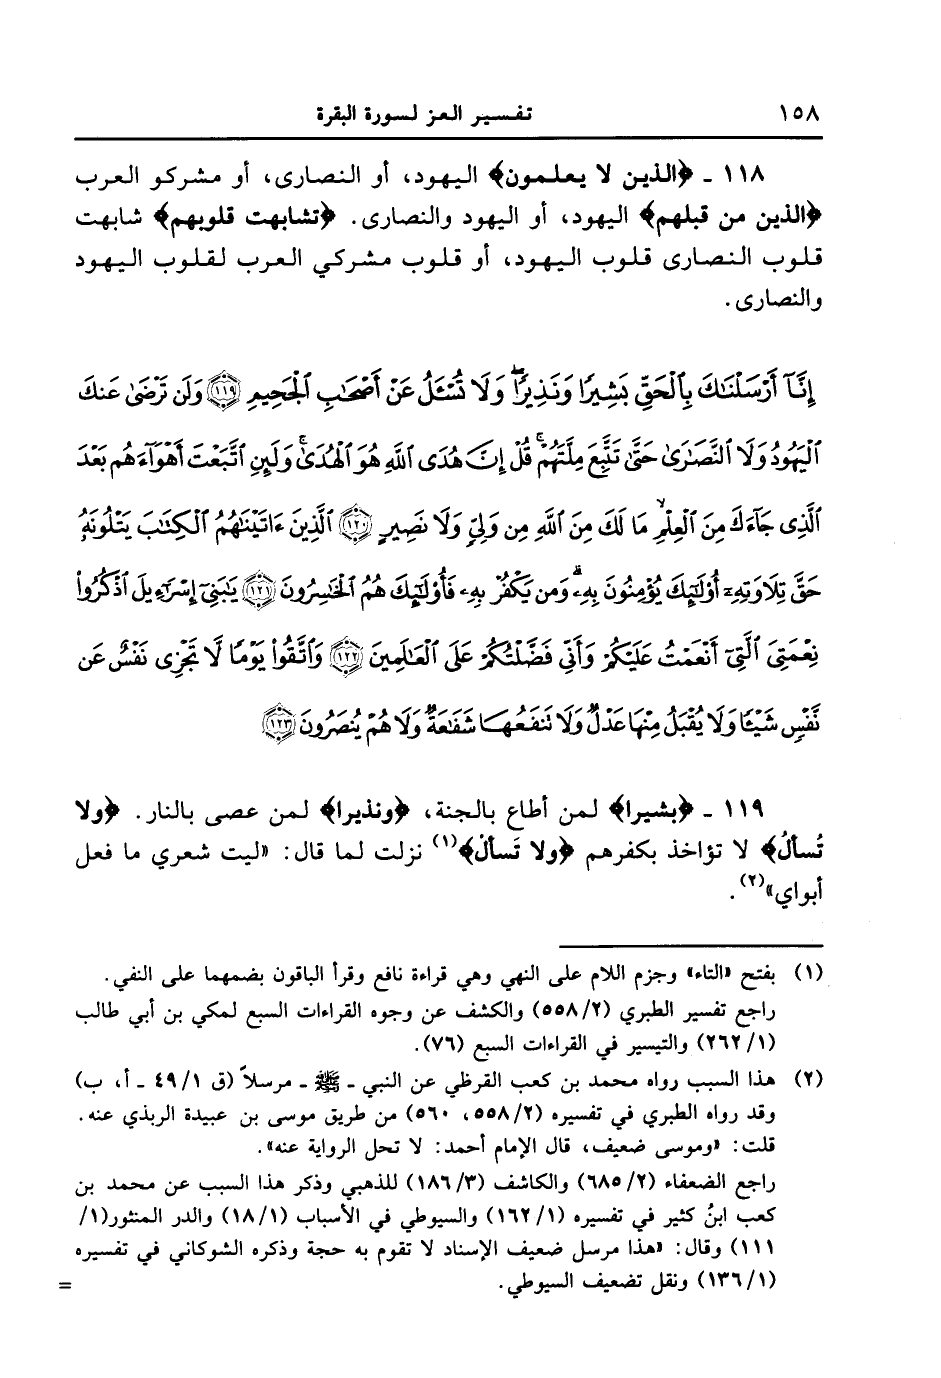 ١٥٨ تفسير العز لسورة البقرة
١١٨ ـ ﴿الذين لا يعلمون﴾ اليهود، أو النصارى، أو مشركو العرب
﴿الذين من قبلهم﴾ اليهود، أو اليهود والنصارى. ﴿تشابهت قلوبهم﴾ شابهت
قلوب النصارى قلوب اليهود، أو قلوب مشركي العرب لقلوب اليهود
والنصارى.
إِنَّآ أَرْسَلْنَٰكَ بِٱلْحَقِّ بَشِيرًا وَنَذِيرًا ۖ وَلَا تُسْـَٔلُ عَنْ أَصْحَٰبِ ٱلْجَحِيمِ ﴿١١٩﴾ وَلَن تَرْضَىٰ عَنكَ
ٱلْيَهُودُ وَلَا ٱلنَّصَٰرَىٰ حَتَّىٰ تَتَّبِعَ مِلَّتَهُمْ ۗ قُلْ إِنَّ هُدَى ٱللَّهِ هُوَ ٱلْهُدَىٰ ۗ وَلَئِنِ ٱتَّبَعْتَ أَهْوَآءَهُم بَعْدَ
ٱلَّذِى جَآءَكَ مِنَ ٱلْعِلْمِ ۙ مَا لَكَ مِنَ ٱللَّهِ مِن وَلِىٍّ وَلَا نَصِيرٍ ﴿١٢٠﴾ ٱلَّذِينَ ءَاتَيْنَٰهُمُ ٱلْكِتَٰبَ يَتْلُونَهُۥ
حَقَّ تِلَاوَتِهِۦٓ أُو۟لَٰٓئِكَ يُؤْمِنُونَ بِهِۦ ۗ وَمَن يَكْفُرْ بِهِۦ فَأُو۟لَٰٓئِكَ هُمُ ٱلْخَٰسِرُونَ ﴿١٢١﴾ يَٰبَنِىٓ إِسْرَٰٓءِيلَ ٱذْكُرُوا۟
نِعْمَتِىَ ٱلَّتِىٓ أَنْعَمْتُ عَلَيْكُمْ وَأَنِّى فَضَّلْتُكُمْ عَلَى ٱلْعَٰلَمِينَ ﴿١٢٢﴾ وَٱتَّقُوا۟ يَوْمًا لَّا تَجْزِى نَفْسٌ عَن
نَّفْسٍ شَيْـًٔا وَلَا يُقْبَلُ مِنْهَا عَدْلٌ وَلَا تَنفَعُهَا شَفَٰعَةٌ وَلَا هُمْ يُنصَرُونَ ﴿١٢٣﴾
١١٩ ـ ﴿بشيرا﴾ لمن أطاع بالجنة، ﴿ونذيرا﴾ لمن عصى بالنار. ﴿ولا
تُسألُ﴾ لا تؤاخذ بكفرهم ﴿ولا تَسألْ﴾(١) نزلت لما قال: «ليت شعري ما فعل
أبواي»(٢).
(١) بفتح «التاء» وجزم اللام على النهي وهي قراءة نافع وقرأ الباقون بضمهما على النفي.
راجع تفسير الطبري (٢/ ٥٥٨) والكشف عن وجوه القراءات السبع لمكي بن أبي طالب
(١/ ٢٦٢) والتيسير في القراءات السبع (٧٦).
(٢) هذا السبب رواه محمد بن كعب القرظي عن النبي ـ ﷺ ـ مرسلاً (ق ١/ ٤٩ ـ أ، ب)
وقد رواه الطبري في تفسيره (٢/ ٥٥٨، ٥٦٠) من طريق موسى بن عبيدة الربذي عنه.
قلت: «وموسى ضعيف، قال الإمام أحمد: لا تحل الرواية عنه».
راجع الضعفاء (٢/ ٦٨٥) والكاشف (٣/ ١٨٦) للذهبي وذكر هذا السبب عن محمد بن
كعب ابنُ كثير في تفسيره (١/ ١٦٢) والسيوطي في الأسباب (١/ ١٨) والدر المنثور(١/
١١١) وقال: «هذا مرسل ضعيف الإسناد لا تقوم به حجة وذكره الشوكاني في تفسيره
(١/ ١٣٦) ونقل تضعيف السيوطي. =